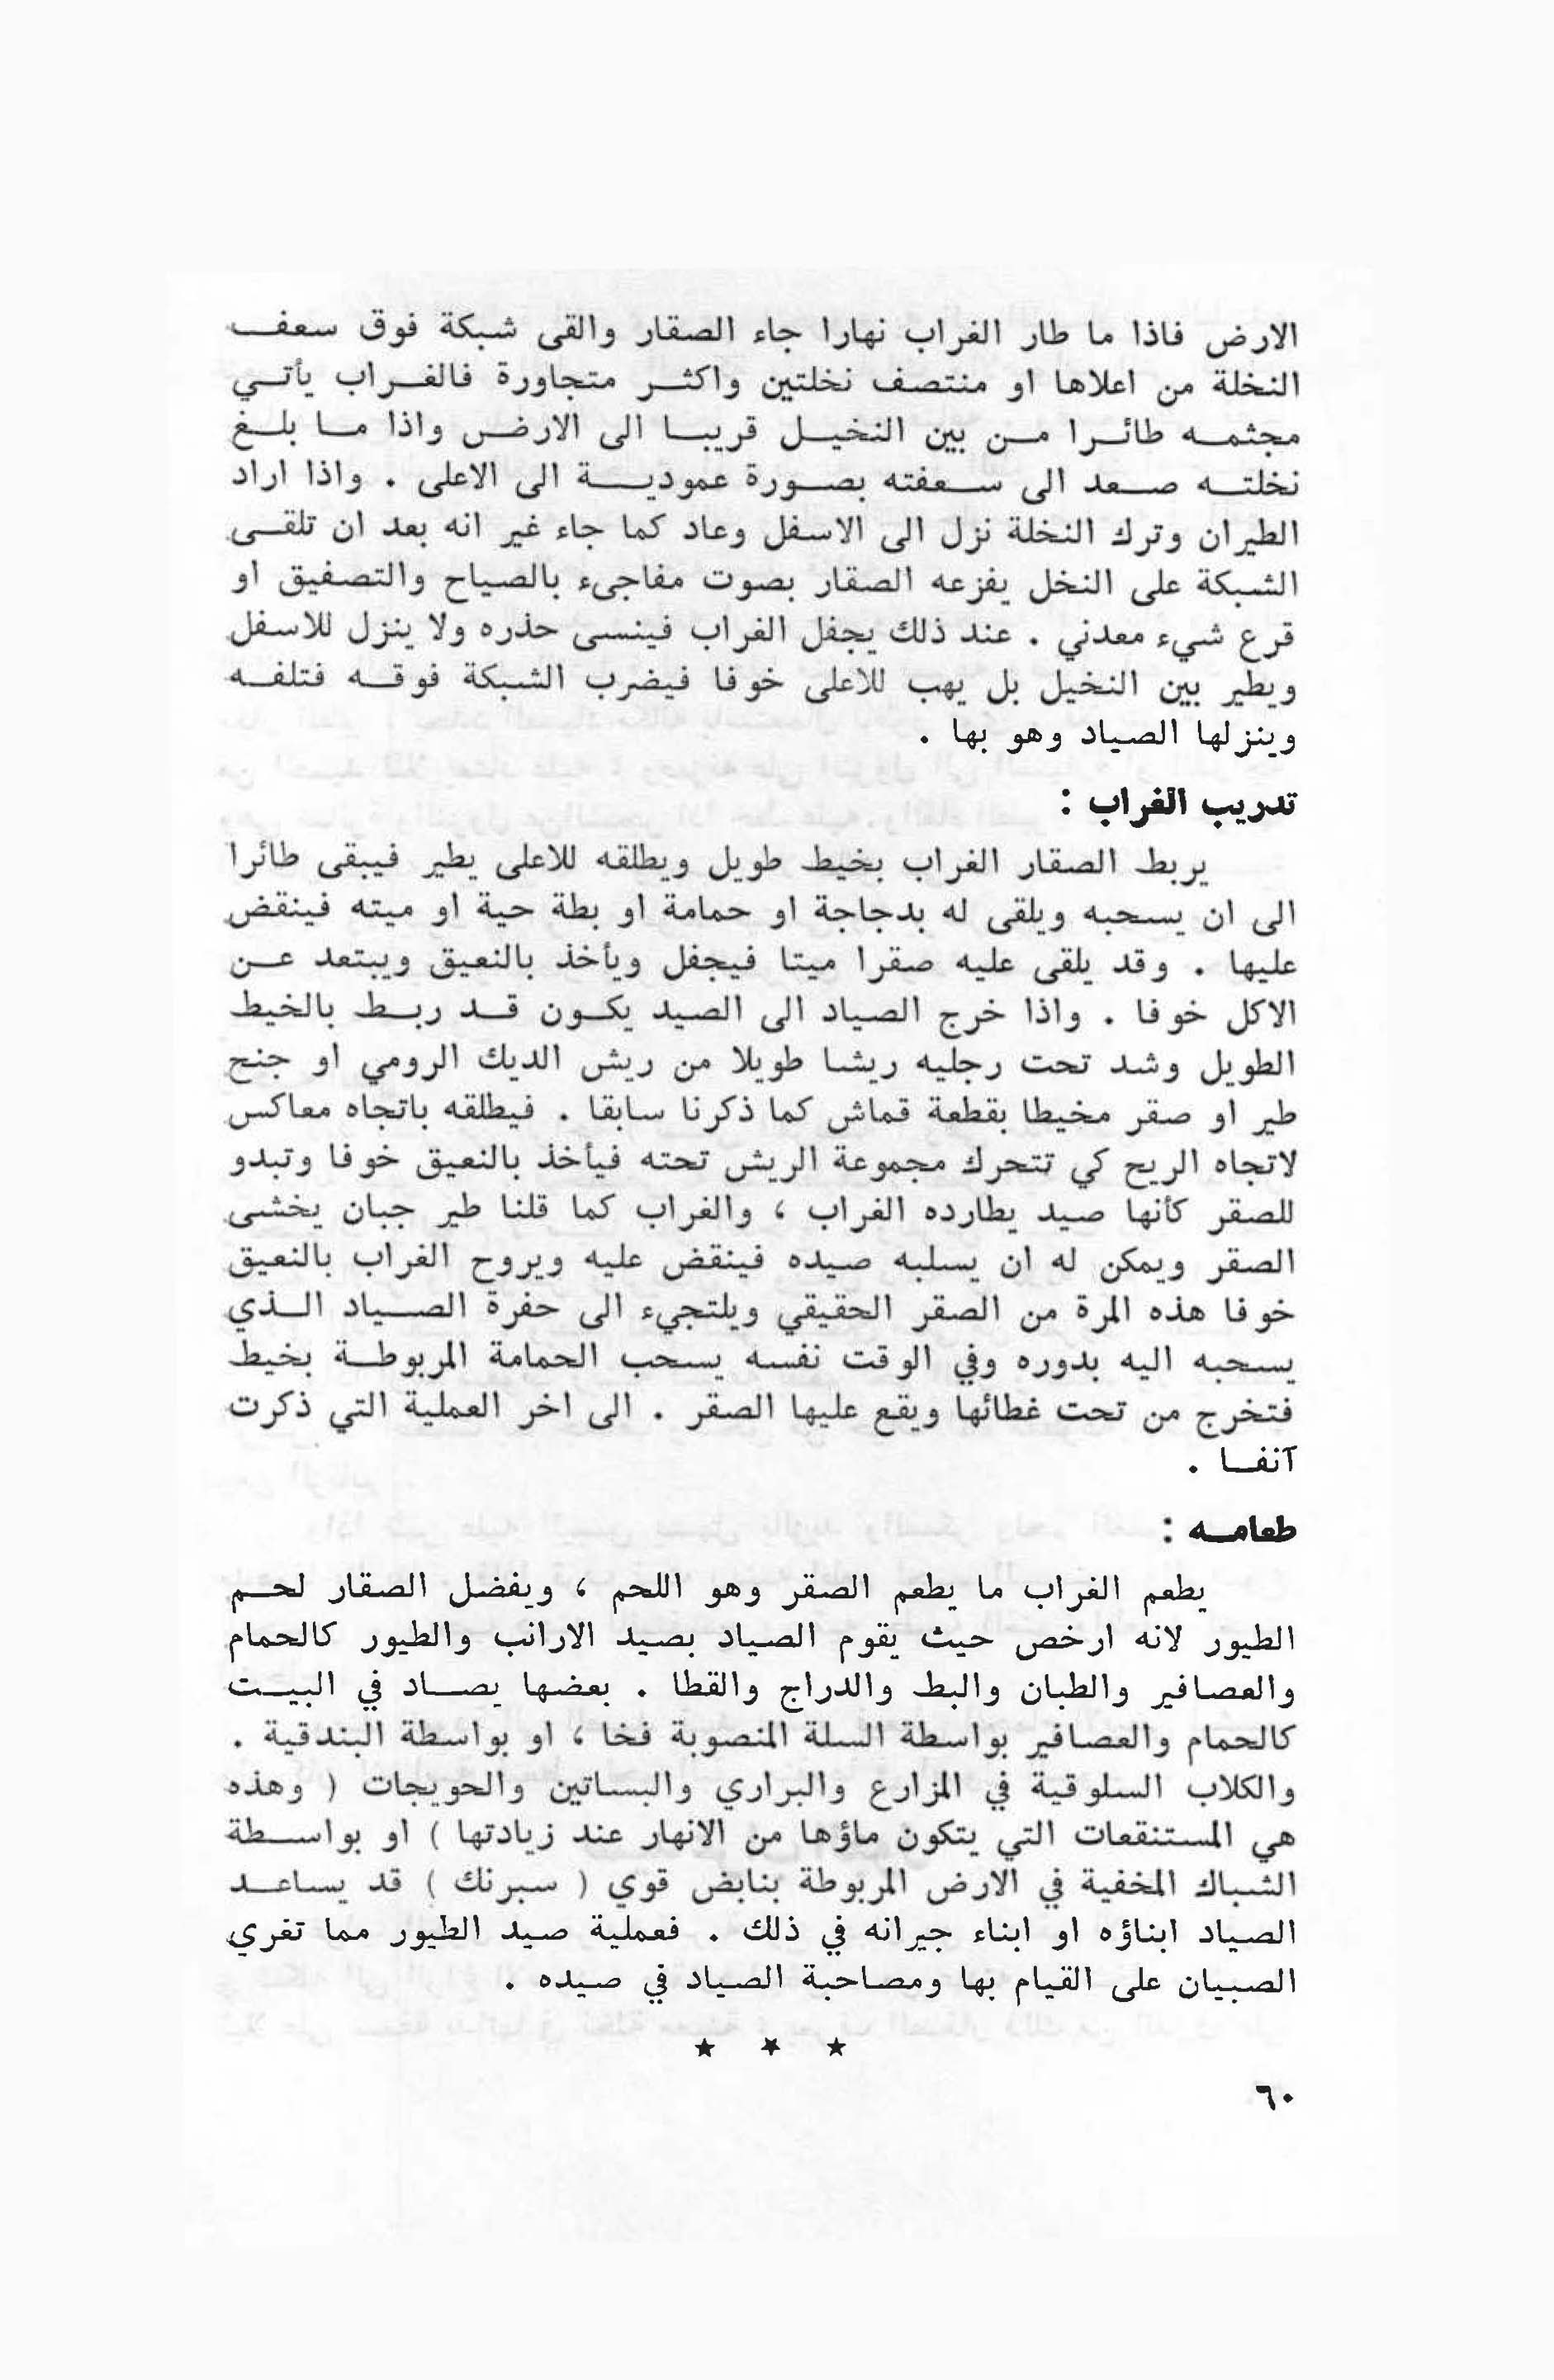 الارض فاذا ما طار الغراب نهارا جاء الصقار والقى شبكة فوق سعف
النخلة من اعلاها او منتصف نخلتين واكثر متجاورة فالغراب يأتي
مجثمه طائرا من بين النخيل قريبا الى الارض واذا ما بلغ
نخلته صعد الى سعفته بصورة عمودية الى الاعلى . واذا اراد
الطيران وترك النخلة نزل الى الاسفل وعاد كما جاء غير انه بعد ان تلقى
الشبكة على النخل يفزعه الصقار بصوت مفاجىء بالصياح والتصفيق او
قرع شيء معدني . عند ذلك يجفل الغراب فينسى حذره ولا ينزل للاسفل
ويطير بين النخيل بل يهب للاعلى خوفا فيضرب الشبكة فوقه فتلفه
وينزلها الصياد وهو بها .
تدريب الغراب :
يربط الصقار الغراب بخيط طويل ويطلقه للاعلى يطير فيبقى طائرا
الى ان يسحبه ويلقى له بدجاجة او حمامة او بطة حية او ميته فينقض
عليها . وقد يلقى عليه صقرا ميتا فيجفل ويأخذ بالنعيق ويبتعد عن
الاكل خوفا . واذا خرج الصياد الى الصيد يكون قد ربط بالخيط
الطويل وشد تحت رجليه ريشا طويلا من ريش الديك الرومي او جنح
طير او صقر مخيطا بقطعة قماش كما ذكرنا سابقا . فيطلقه باتجاه معاكس
لاتجاه الريح كي تتحرك مجموعة الريش تحته فيأخذ بالنعيق خوفا وتبدو
للصقر كأنها صيد يطارده الغراب ، والغراب كما قلنا طير جبان يخشى
الصقر ويمكن له ان يسلبه صيده فينقض عليه ويروح الغراب بالنعيق
خوفا هذه المرة من الصقر الحقيقي ويلتجيء الى حفرة الصياد الذي
يسحبه اليه بدوره وفي الوقت نفسه يسحب الحمامة المربوطة بخيط
فتخرج من تحت غطائها ويقع عليها الصقر . الى اخر العملية التي ذكرت
آنفا .
طعامه :
يطعم الغراب ما يطعم الصقر وهو اللحم ، ويفضل الصقار لحم
الطيور لانه ارخص حيث يقوم الصياد بصيد الارانب والطيور كالحمام
والعصافير والطبان والبط والدراج والقطا . بعضها يصاد في البيت
كالحمام والعصافير بواسطة السلة المنصوبة فخا ، او بواسطة البندقية .
والكلاب السلوقية في المزارع والبراري والبساتين والحويجات ( وهذه
هي المستنقعات التي يتكون ماؤها من الانهار عند زيادتها ) او بواسطة
الشباك المخفية في الارض المربوطة بنابض قوي ( سبرنك ) قد يساعد
الصياد ابناؤه او ابناء جيرانه في ذلك . فعملية صيد الطيور مما تغري
الصبيان على القيام بها ومصاحبة الصياد في صيده .
★ ★ ★
٦٠